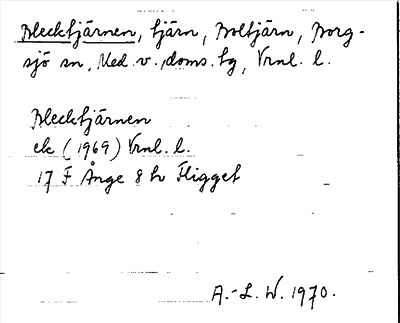 Blecktjärnen, tjärn, Boltjärn, Borg-
sjö sn, Med. v., doms. tg, Vrnl. l.
Blecktjärnen
ek (1969) Vrnl. l.
17 F Ånge 8 h Fligget
A.-L. W. 1970.